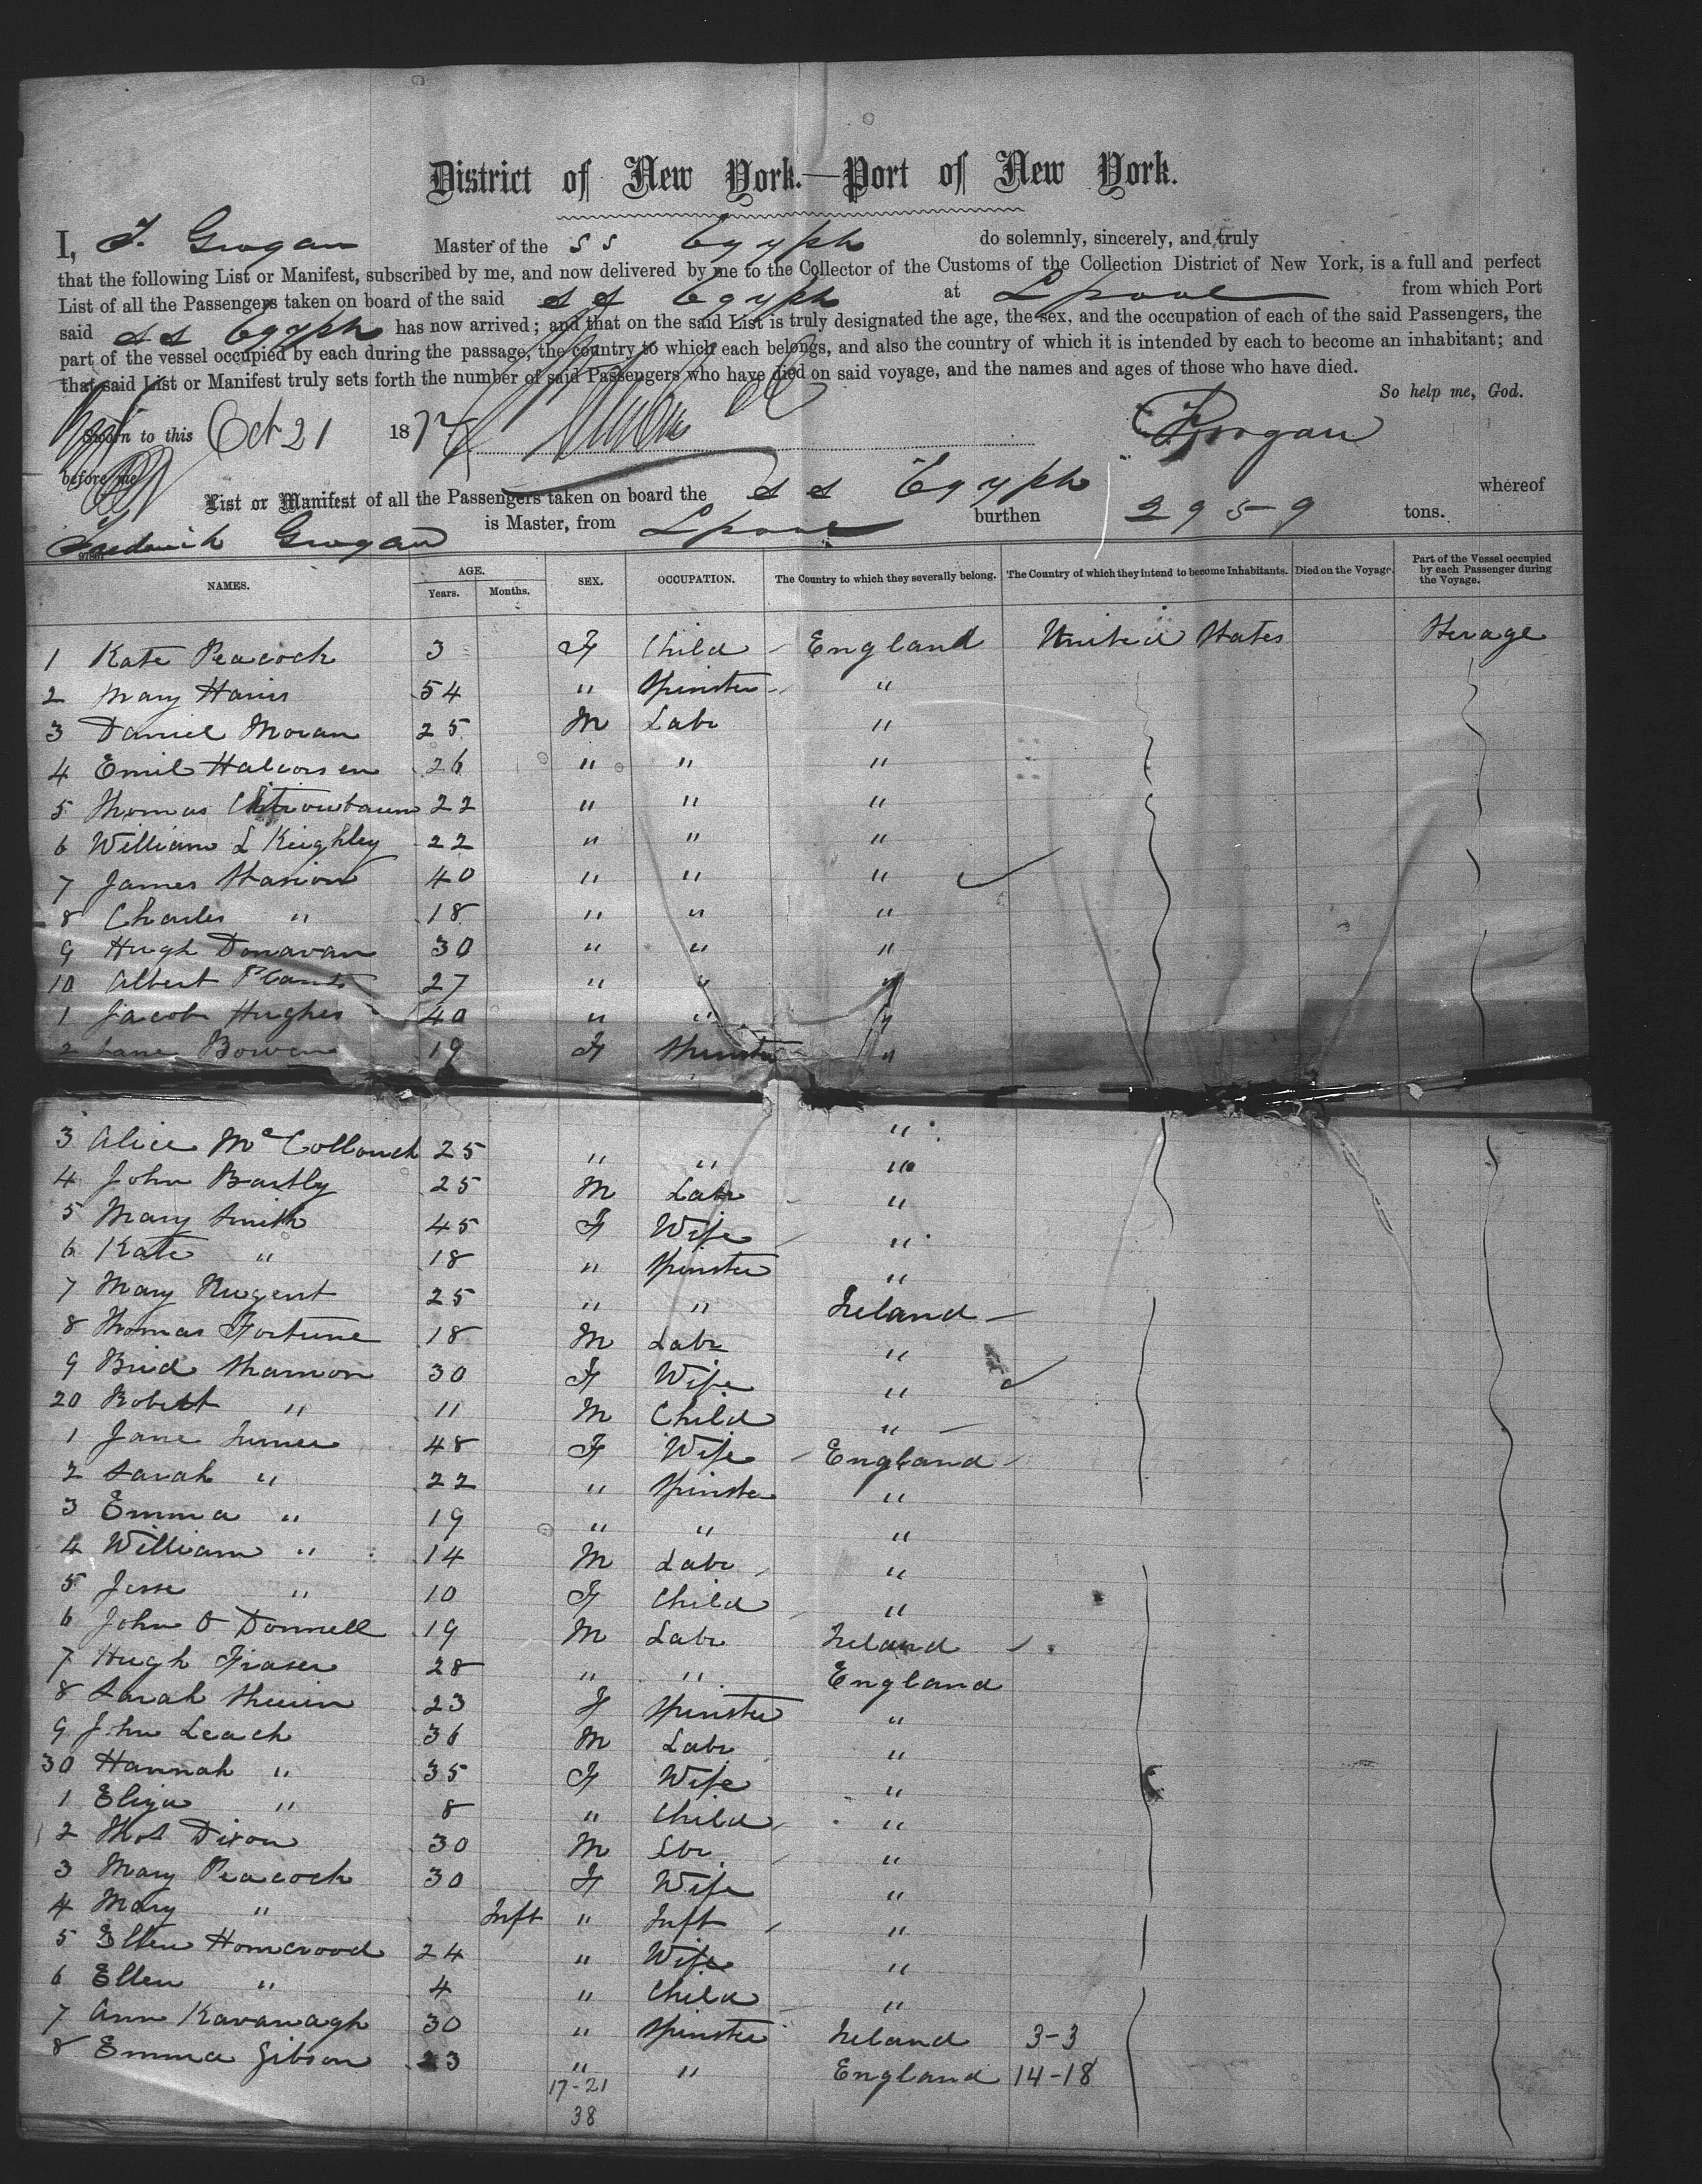 District of New York.—Port of New York.
I, F. Grogan Master of the S S Egypt do solemnly, sincerely, and truly
that the following List or Manifest, subscribed by me, and now delivered by me to the Collector of the Customs of the Collection District of New York, is a full and perfect
List of all the Passengers taken on board of the said S S Egypt at Lpool from which Port
said S S Egypt has now arrived; and that on the said List is truly designated the age, the sex, and the occupation of each of the said Passengers, the
part of the vessel occupied by each during the passage, the country to which each belongs, and also the country of which it is intended by each to become an inhabitant; and
that said List or Manifest truly sets forth the number of said Passengers who have died on said voyage, and the names and ages of those who have died.
So help me, God.
Sworn to this Oct 21 187 F Grogan
before me
List or Manifest of all the Passengers taken on board the S S Egypt whereof
Frederick Grogan is Master, from Lpool burthen 2959 tons.
NAMES. AGE. Years. Months. SEX. OCCUPATION. The Country to which they severally belong. The Country of which they intend to become Inhabitants. Died on the Voyage. Part of the Vessel occupied by each Passenger during the Voyage.
1 Kate Peacock 3 F Child England United States Sterage
2 Mary Harris 54 " Spinster "
3 Daniel Moran 25 M Labr "
4 Emil Halvorsen 26 " " "
5 Thomas 22 " " "
6 William L Keighley 22 " " "
7 James 40 " " "
8 Charles " 18 " " "
9 Hugh Donavan 30 " " "
10 Albert Plant 27 " " "
1 Jacob Hughes 40 " " "
2 Jane Bowen 19 F Spinster "
3 Alice McCollouch 25 " " "
4 John Bartly 25 M Labr "
5 Mary Smith 45 F Wife "
6 Kate " 18 " Spinster "
7 Mary Nugent 25 " " Ireland
8 Thomas Fortune 18 M Labr "
9 Brid Shannon 30 F Wife "
20 Robert " 11 M Child "
1 Jane Turner 48 F Wife England
2 Sarah " 22 " Spinster "
3 Emma " 19 " " "
4 William " 14 M Labr "
5 Jesse " 10 F Child "
6 John O Donnell 19 M Labr Ireland
7 Hugh Fraser 28 " " England
8 Sarah 23 F Spinster "
9 John Leach 36 M Labr "
30 Hannah " 35 F Wife "
1 Eliza " 8 " Child "
2 Thos Dixon 30 M Lbr "
3 Mary Peacock 30 F Wife "
4 Mary " Inft " Inft "
5 Ellen Homewood 24 " Wife "
6 Ellen " 4 " Child "
7 Ann Kavanagh 30 " Spinster Ireland 3-3
8 Emma Gibson 23 " " England 14-18
17-21
38